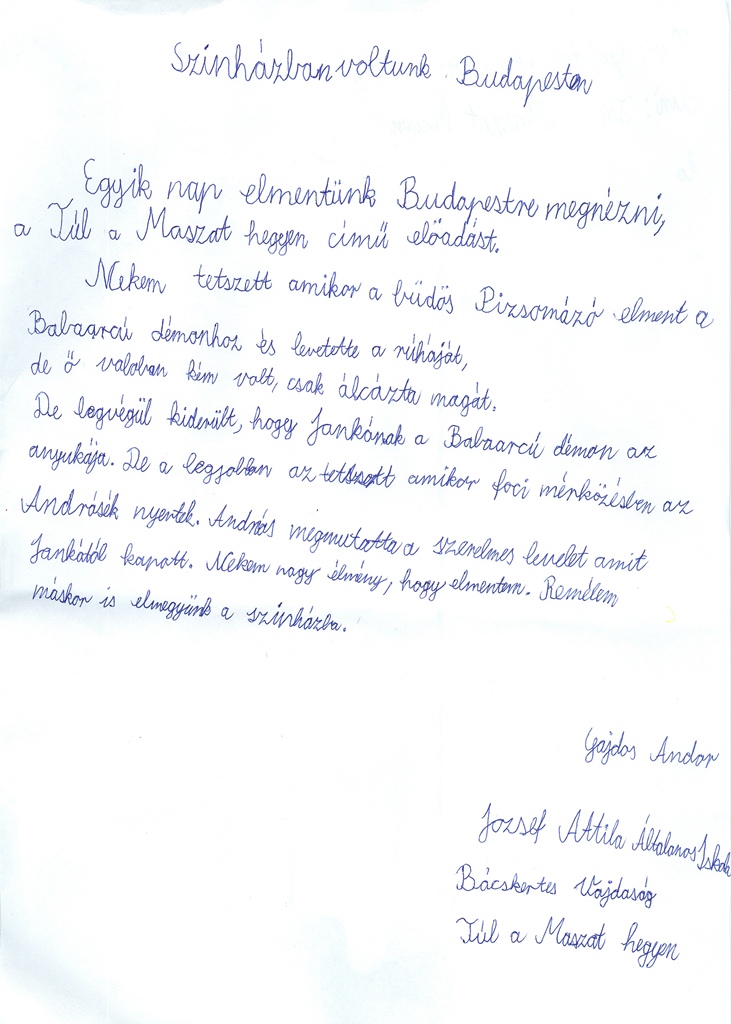 Szinházban voltunk Budapesten
Egyik nap elmentünk Budapestre megnézni,
a Túl a Maszat hegyen című előadást.
Nekem tetszett amikor a büdös Pizsomázó elment a
Babaarcú démonhoz és levetette a rúháját,
de ő valoban kém volt, csak álcázta magát.
De legvégül kiderült, hogy Jankónak a Babaarcú démon az
anyukája. De a legjobban az tetszett amikor foci mérközésben az
Andrásék nyertek. András megmutatta a szerelmes levelet amit
Jankától kapott. Nekem nagy élmény, hogy elmentem. Remélem
máskor is elmegyünk a szinházba.
Gajdos Andor
Jozsef Attila Általanos Iskola
Bácskertes Vajdaság
Túl a Maszat hegyen